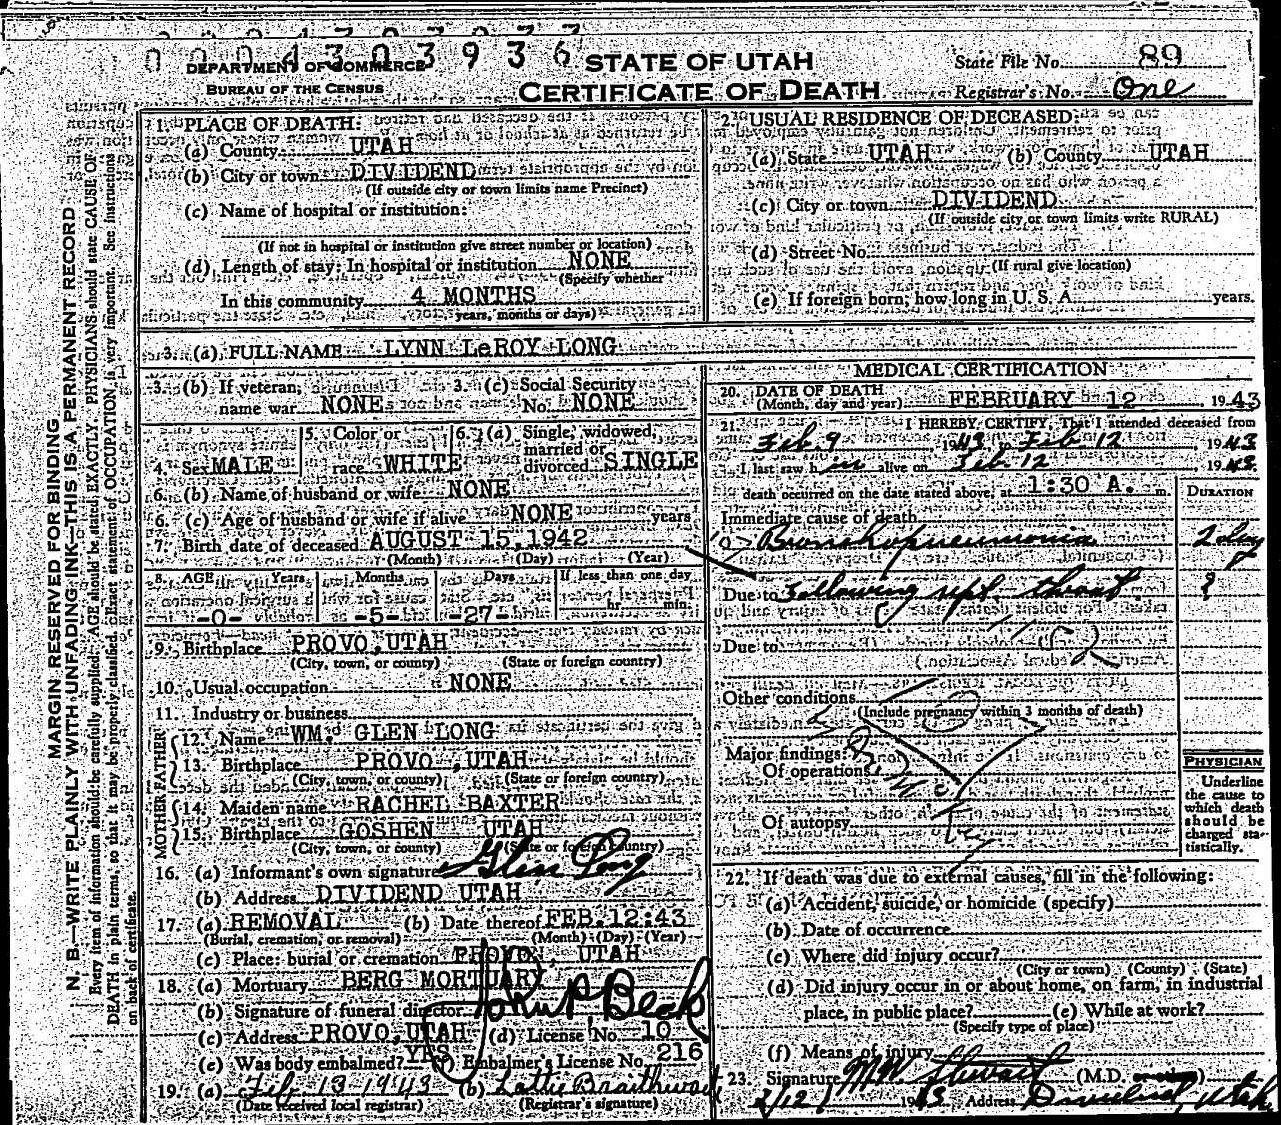 0004303936
DEPARTMENT OF COMMERCE
BUREAU OF THE CENSUS
STATE OF UTAH
CERTIFICATE OF DEATH
State File No. 89
Registrar's No. One
MARGIN RESERVED FOR BINDING
N. B.—WRITE PLAINLY WITH UNFADING INK—THIS IS A PERMANENT RECORD
Every item of information should be carefully supplied. AGE should be stated EXACTLY. PHYSICIANS should state CAUSE OF
DEATH in plain terms, so that it may be properly classified. Exact statement of OCCUPATION is very important. See instructions
on back of certificate.
1. PLACE OF DEATH:
(a) County UTAH
(b) City or town DIVIDEND
(If outside city or town limits name Precinct)
(c) Name of hospital or institution:
(If not in hospital or institution give street number or location)
(d) Length of stay: In hospital or institution NONE
(Specify whether
In this community 4 MONTHS
years, months or days)
2. USUAL RESIDENCE OF DECEASED:
(a) State UTAH (b) County UTAH
(c) City or town DIVIDEND
(If outside city or town limits write RURAL)
(d) Street No.
(If rural give location)
(e) If foreign born, how long in U. S. A. years.
3. (a) FULL NAME LYNN LeROY LONG
3. (b) If veteran, name war NONE
3. (c) Social Security No. NONE
4. Sex MALE
5. Color or race WHITE
6. (a) Single, widowed, married or divorced SINGLE
6. (b) Name of husband or wife NONE
6. (c) Age of husband or wife if alive NONE years
7. Birth date of deceased AUGUST 15, 1942
(Month) (Day) (Year)
8. AGE Years Months Days If less than one day
-0- -5- -27- hr. min.
9. Birthplace PROVO, UTAH
(City, town, or county) (State or foreign country)
10. Usual occupation NONE
11. Industry or business
FATHER
12. Name WM. GLEN LONG
13. Birthplace PROVO, UTAH
(City, town, or county) (State or foreign country)
MOTHER
14. Maiden name RACHEL BAXTER
15. Birthplace GOSHEN UTAH
(City, town, or county) (State or foreign country)
16. (a) Informant's own signature Glen Long
(b) Address DIVIDEND UTAH
17. (a) REMOVAL (b) Date thereof FEB. 12:43
(Burial, cremation, or removal) (Month) (Day) (Year)
(c) Place: burial or cremation PROVO, UTAH
18. (a) Mortuary BERG MORTUARY
(b) Signature of funeral director John P Beck
(c) Address PROVO, UTAH (d) License No. 10
(e) Was body embalmed? YES (f) Embalmer's License No. 216
19. (a) Feb 13 1943 (b) Lottie Braithwait
(Date received local registrar) (Registrar's signature)
MEDICAL CERTIFICATION
20. DATE OF DEATH
(Month, day and year) FEBRUARY 12, 1943
21. I HEREBY CERTIFY, That I attended deceased from
Feb. 9, 1943 to Feb 12, 1943
I last saw h im alive on Feb. 12, 1943
death occurred on the date stated above, at 1:30 A. m.
DURATION
Immediate cause of death
Bronchopneumonia
Due to Following sept. throat ?
Due to
Other conditions
(Include pregnancy within 3 months of death)
Major findings:
Of operations
Of autopsy
PHYSICIAN
Underline
the cause to
which death
should be
charged sta-
tistically.
22. If death was due to external causes, fill in the following:
(a) Accident, suicide, or homicide (specify)
(b) Date of occurrence
(c) Where did injury occur?
(City or town) (County) (State)
(d) Did injury occur in or about home, on farm, in industrial
place, in public place? (e) While at work?
(Specify type of place)
(f) Means of injury
23. Signature M W Stewart (M.D.
2/12 1943 Address Dividend, Utah